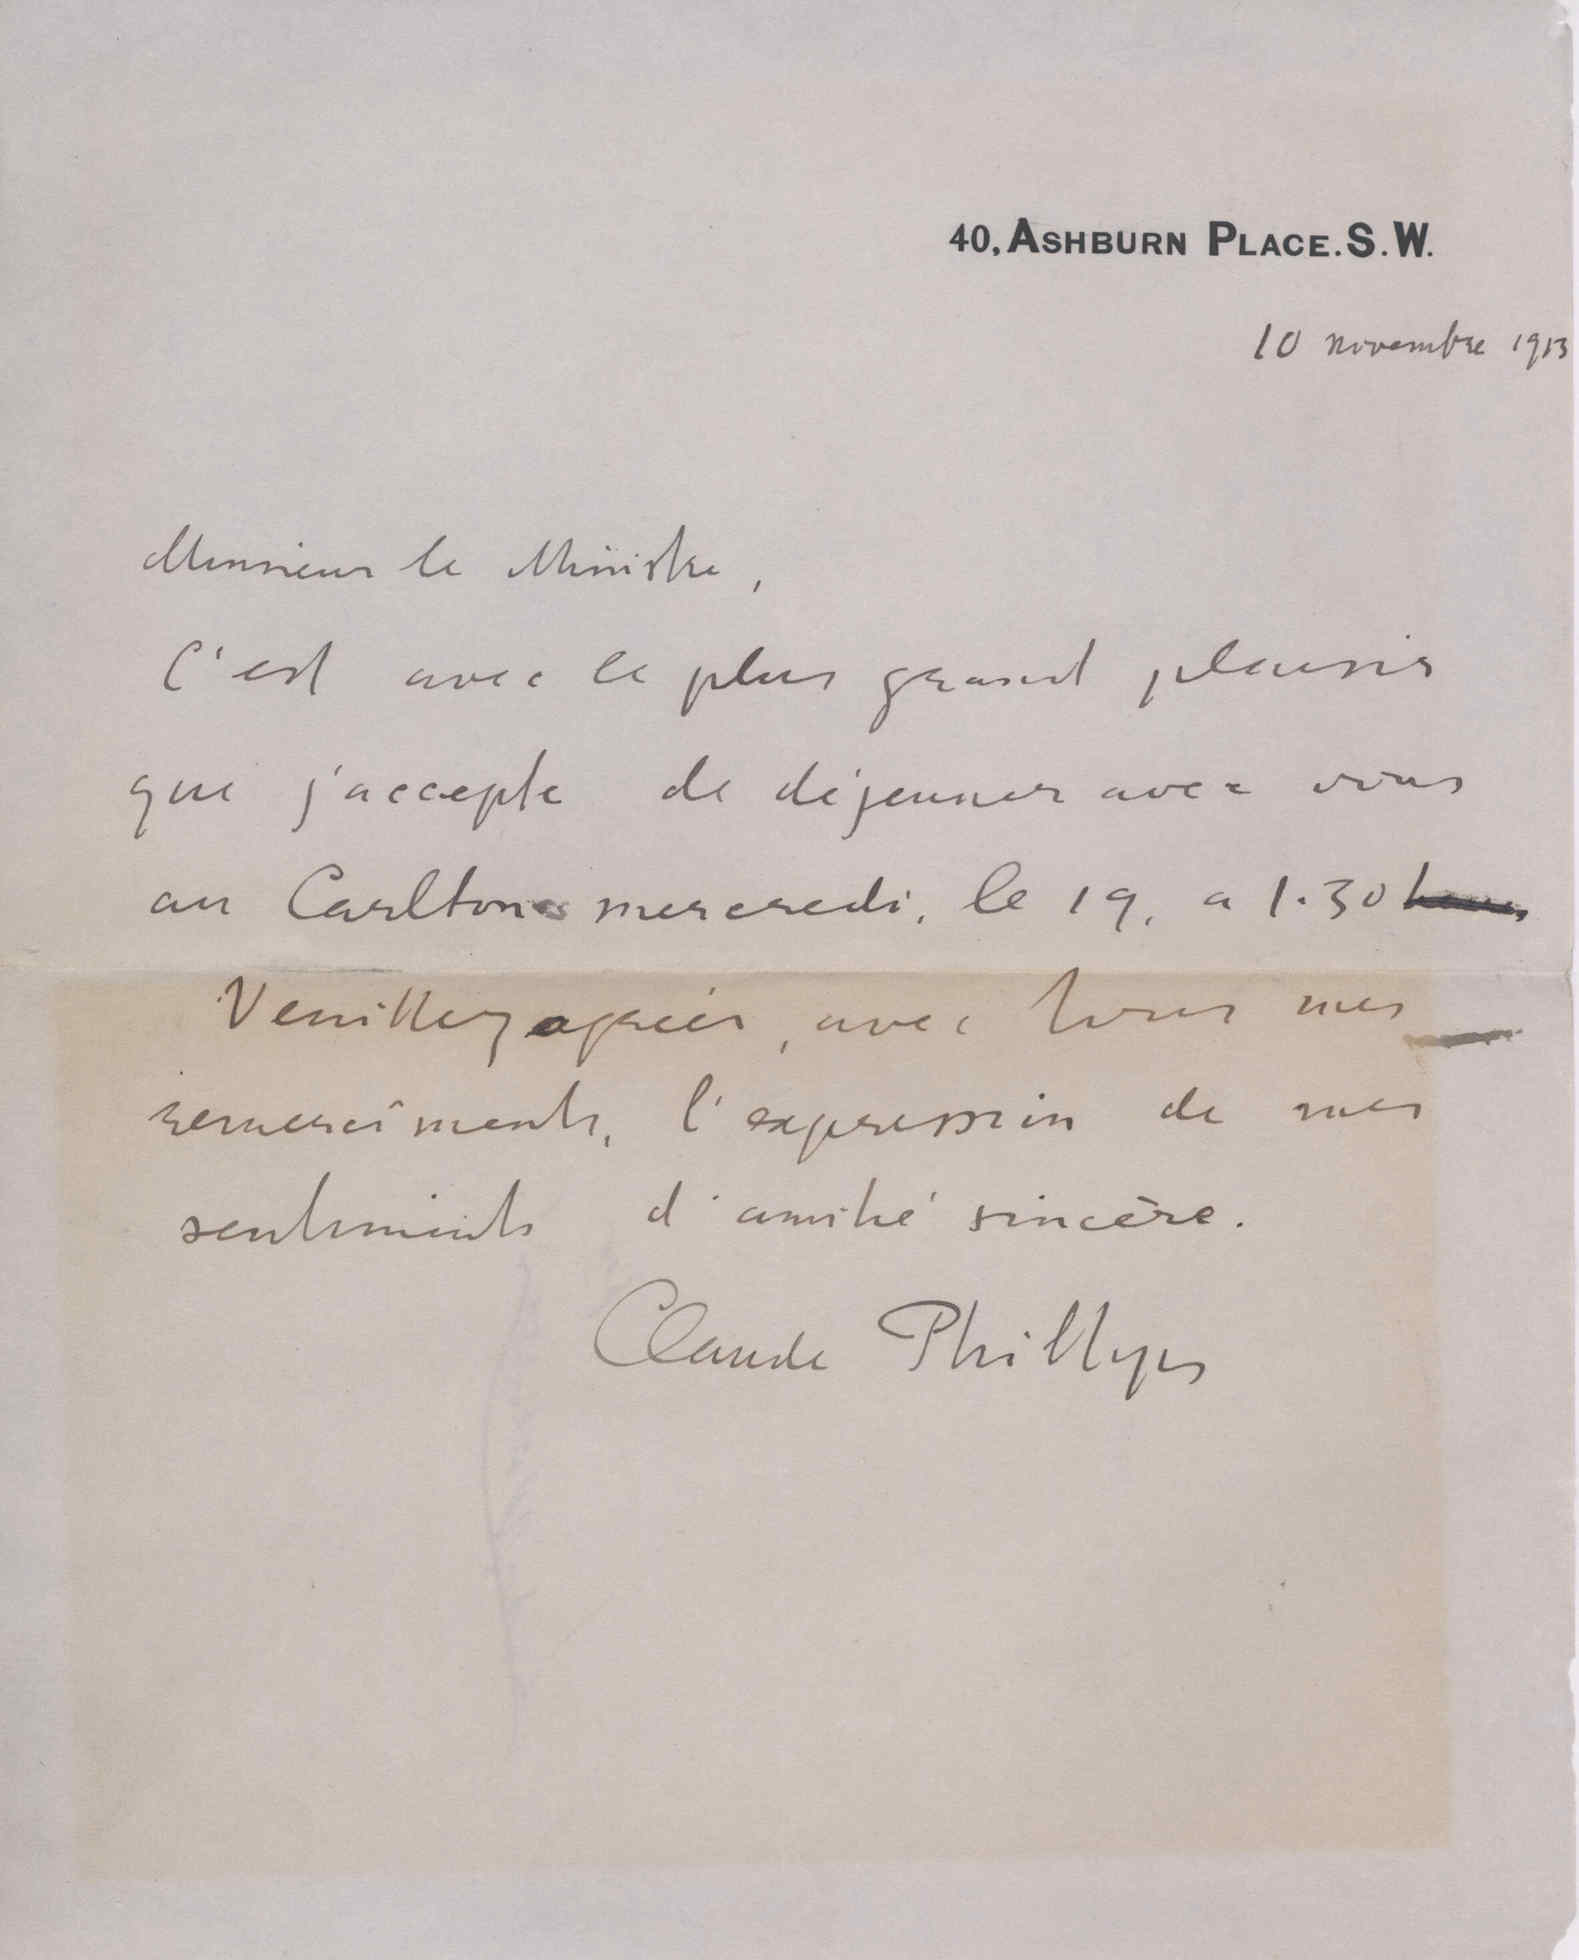 40, ASHBURN PLACE. S. W.
10 novembre 1913
Monsieur le Ministre,
C'est avec le plus grand plaisir
que j'accepte de déjeuner avec vous
au Carlton mercredi, le 19, a 1.30 heures
Veuillez agréer, avec tous mes
remercîments, l'expression de mes
sentiments d'amitié sincère.
Claude Phillips